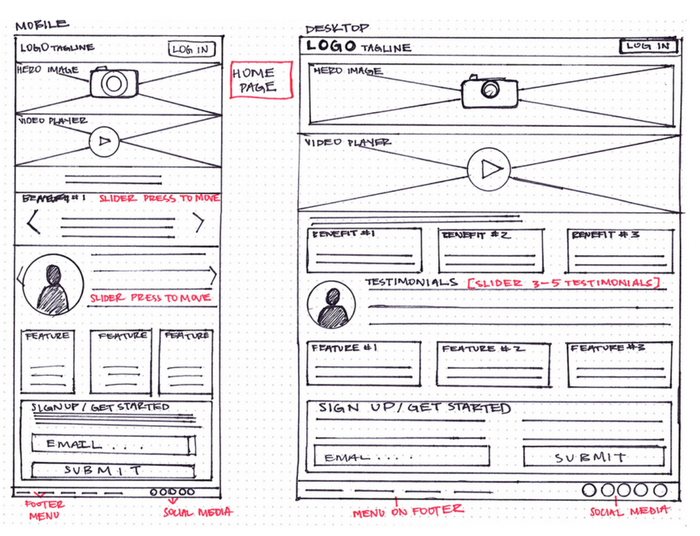 MOBILE
LOGO TAGLINE
LOG IN
HERO IMAGE
VIDEO PLAYER
BENEFIT #1 SLIDER PRESS TO MOVE
SLIDER PRESS TO MOVE
FEATURE FEATURE FEATURE
SIGN UP/GET STARTED
EMAIL ...
SUBMIT
FOOTER
MENU
SOCIAL MEDIA
HOME
PAGE
DESKTOP
LOGO TAGLINE
LOG IN
HERO IMAGE
VIDEO PLAYER
BENEFIT #1 BENEFIT #2 BENEFIT #3
TESTIMONIALS [SLIDER 3-5 TESTIMONIALS]
FEATURE #1 FEATURE #2 FEATURE #3
SIGN UP/GET STARTED
EMAL ....
SUBMIT
MENU ON FOOTER
SOCIAL MEDIA